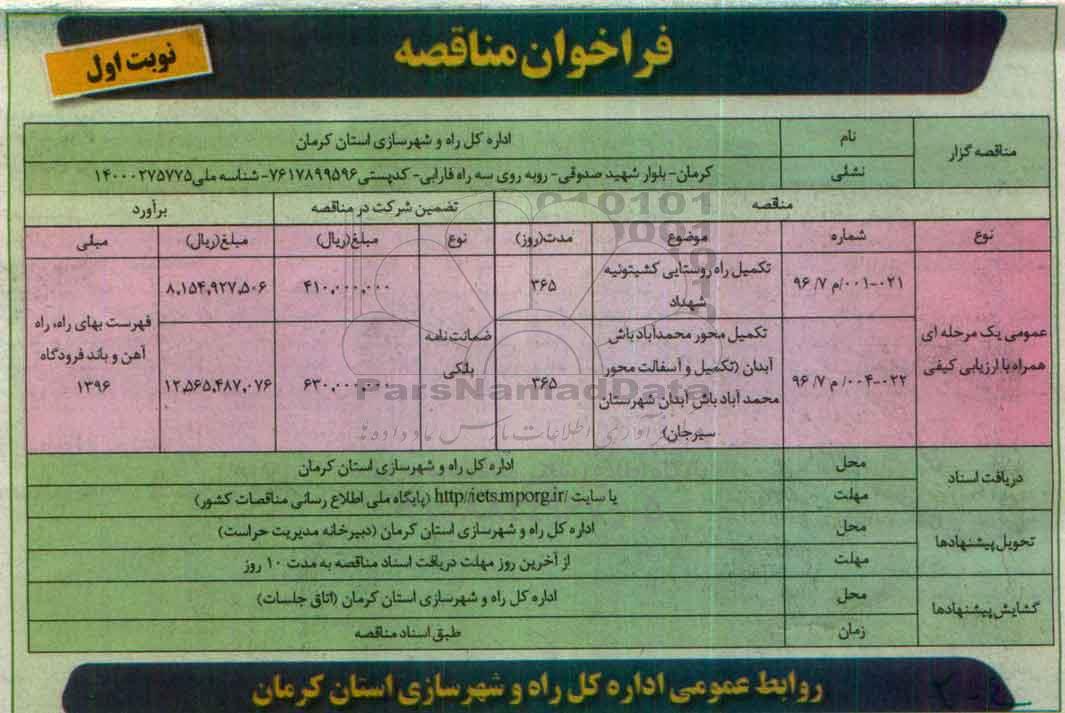 فراخوان مناقصه
نوبت اول
مناقصه گزار
نام
اداره کل راه و شهرسازی استان کرمان
نشانی
کرمان- بلوار شهید صدوقی- روبه روی سه راه فارابی- کدپستی ۷۶۱۷۸۹۹۵۹۶- شناسه ملی ۱۴۰۰۰۲۷۵۷۷۵
مناقصه
تضمین شرکت در مناقصه
برآورد
نوع
شماره
موضوع
مدت(روز)
نوع
مبلغ(ریال)
مبلغ(ریال)
مبلی
عمومی یک مرحله ای
همراه با ارزیابی کیفی
۰۰۱-۰۲۱/م ۹۶/۷
تکمیل راه روستایی کشیتوئیه
شهداد
۳۶۵
ضمانت نامه
بانکی
۴۱۰,۰۰۰,۰۰۰
۸,۱۵۴,۹۲۷,۵۰۶
فهرست بهای راه، راه
آهن و باند فرودگاه
۱۳۹۶
۰۰۴-۰۲۲/م ۹۶/۷
تکمیل محور محمدآباد باش
آبدان (تکمیل و آسفالت محور
محمد آباد باش آبدان شهرستان
سیرجان)
۳۶۵
۶۳۰,۰۰۰,۰۰۰
۱۲,۵۶۵,۴۸۷,۰۷۶
دریافت اسناد
محل
اداره کل راه و شهرسازی استان کرمان
مهلت
یا سایت http//iets.mporg.ir/ (پایگاه ملی اطلاع رسانی مناقصات کشور)
تحویل پیشنهادها
محل
اداره کل راه و شهرسازی استان کرمان (دبیرخانه مدیریت حراست)
مهلت
از آخرین روز مهلت دریافت اسناد مناقصه به مدت ۱۰ روز
گشایش پیشنهادها
محل
اداره کل راه و شهرسازی استان کرمان (اتاق جلسات)
زمان
طبق اسناد مناقصه
روابط عمومی اداره کل راه و شهرسازی استان کرمان
ParsNamadData